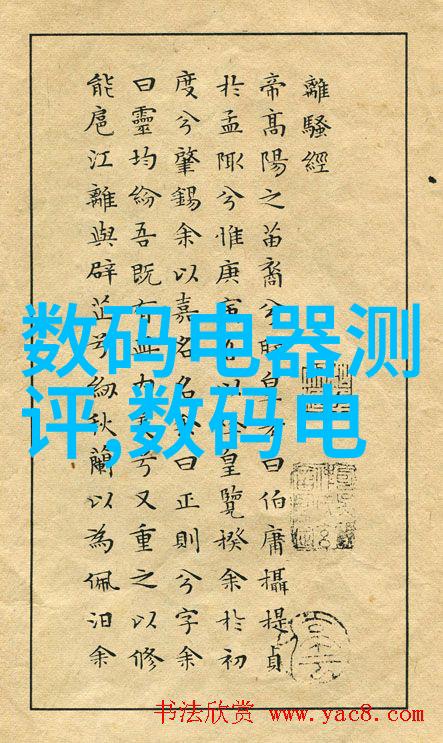 離騷經
帝髙陽之苗裔兮皇曰伯庸攝提貞
於孟陬兮惟庚寅以皇覽揆余於初
度兮肇錫余以嘉名名余曰正則兮字余
曰靈均紛吾既有此内美兮又重之以修
能扈江離與辟芷兮紉秋蘭以為佩汩余
数码电器测
评,数码电
书法欣赏 www.yac8.com